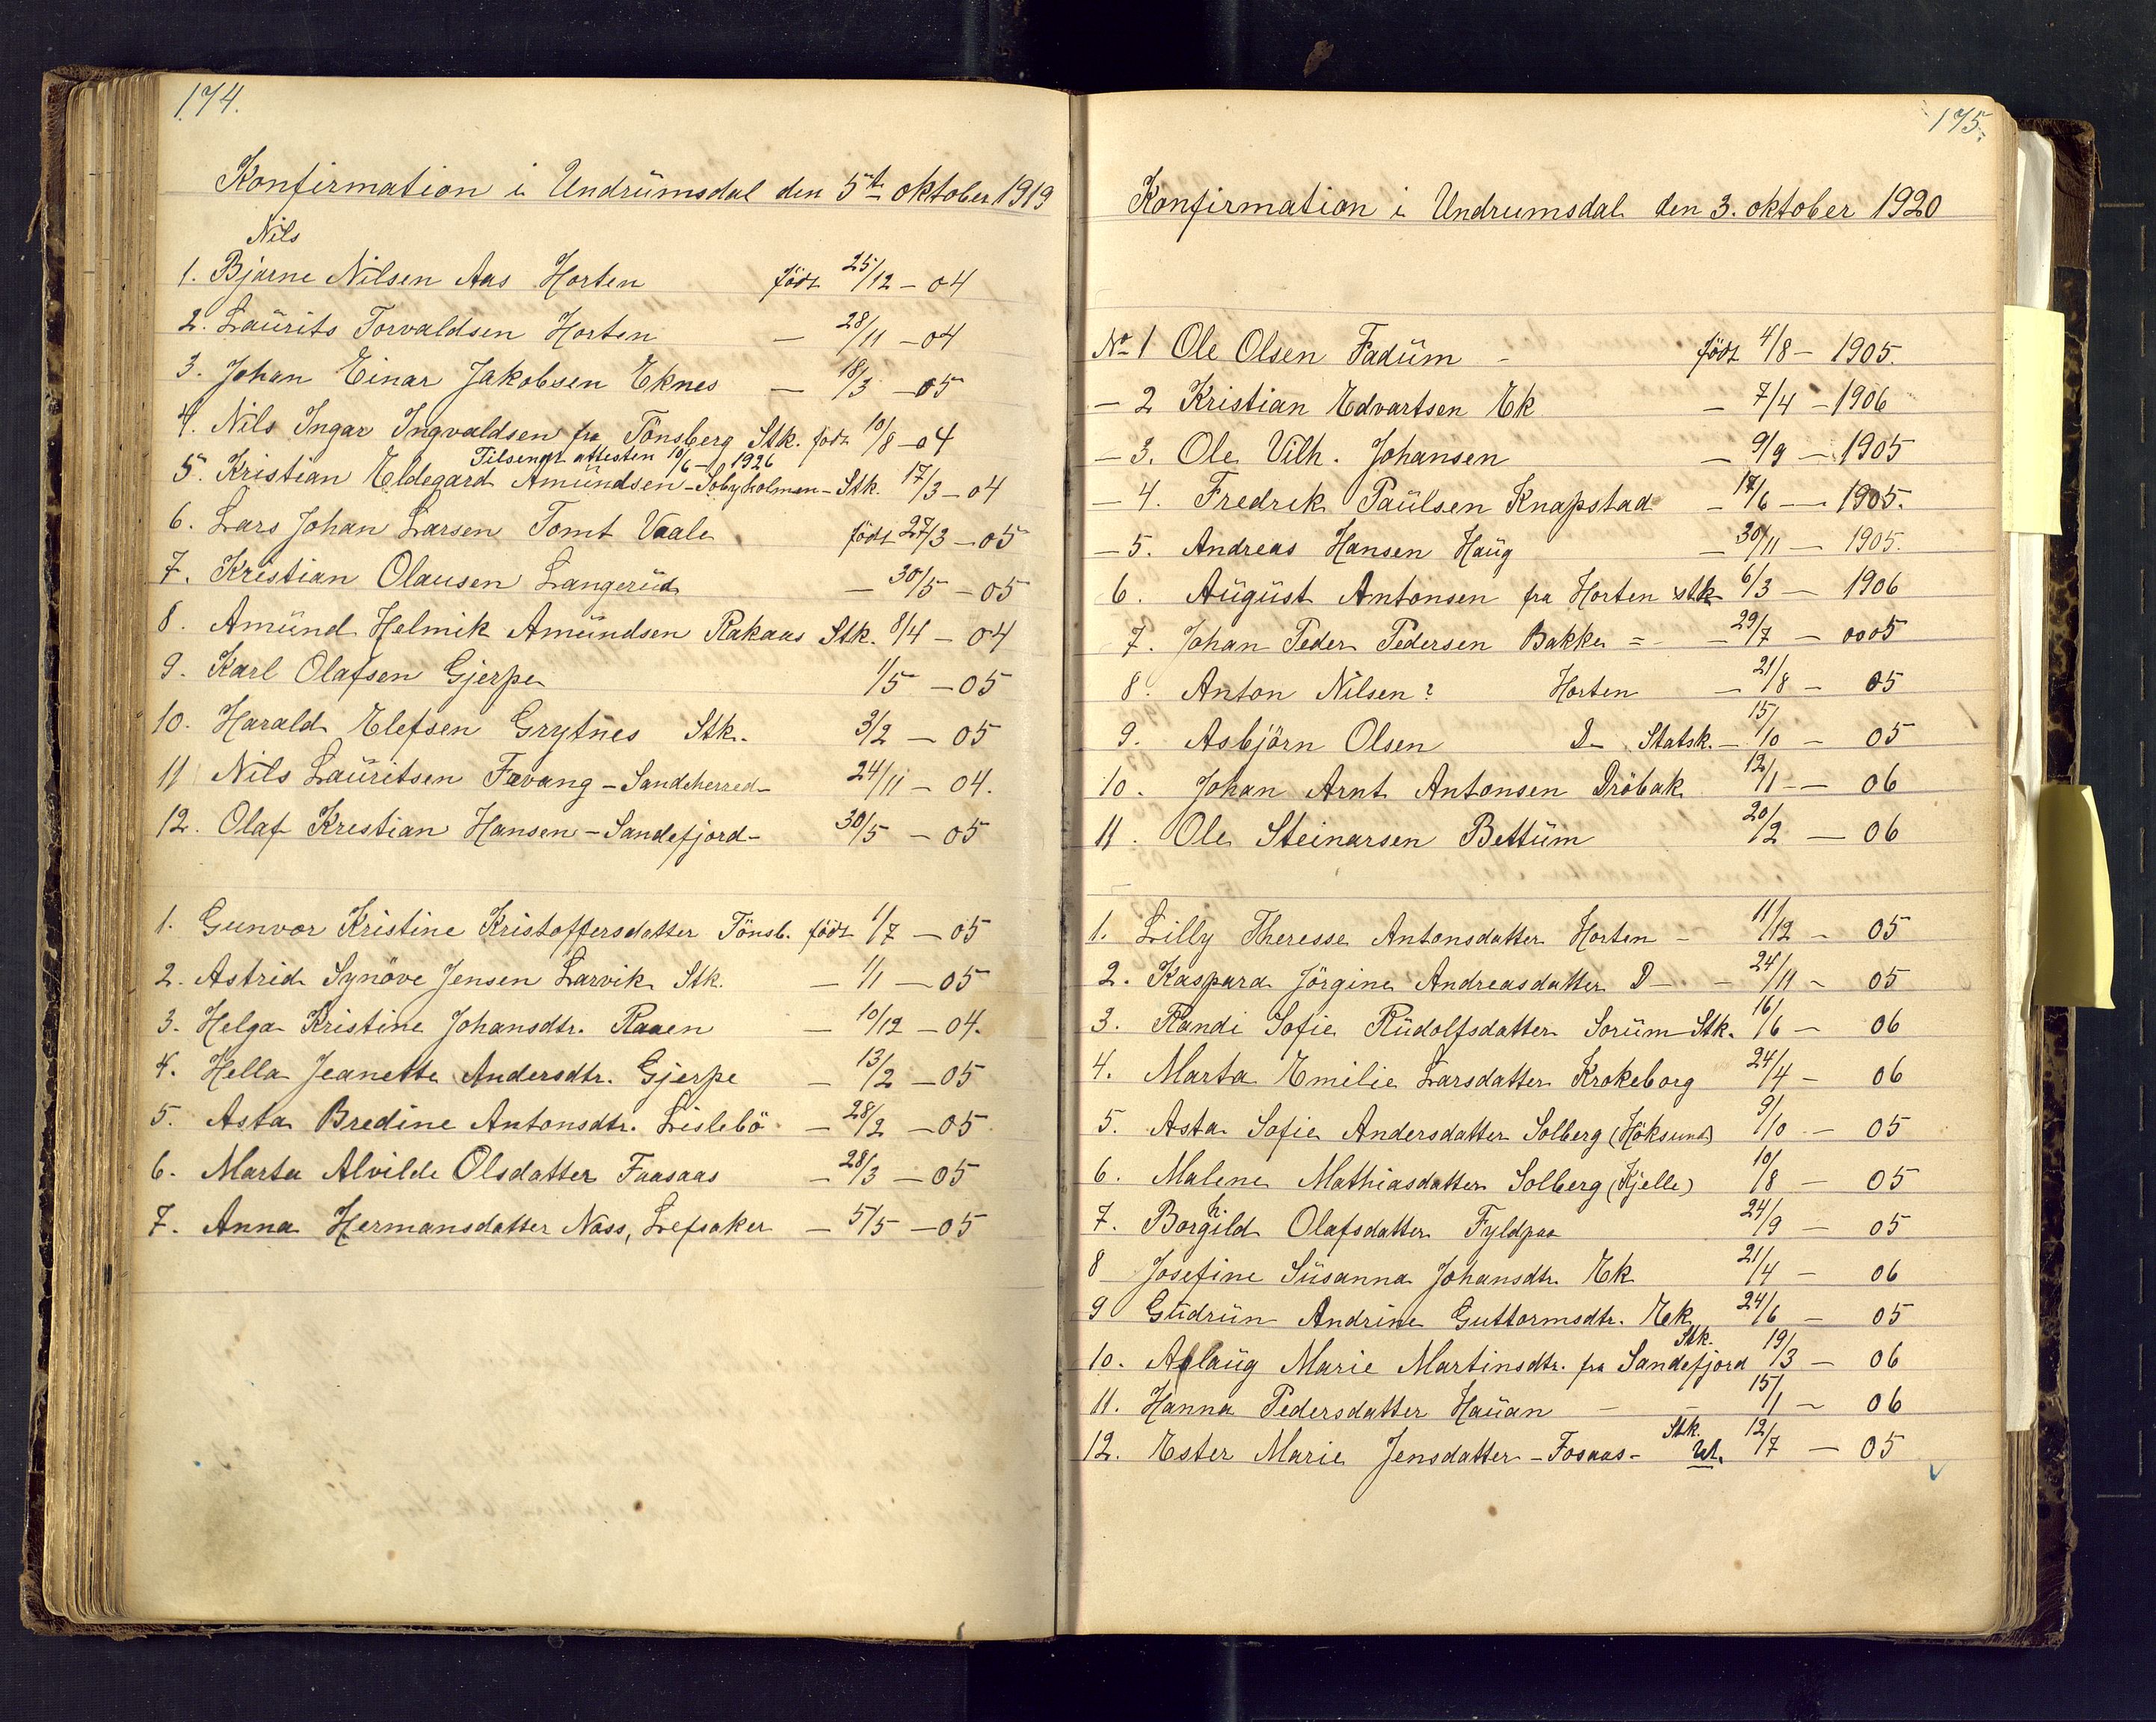 174.
Konfirmation i Undrümsdal den 5te oktober 1919
Nils
1. Bjarne Nilsen Aas Horten födt 25/12 – 04
2. Laürits Torvaldsen Horten — 28/11 – 04
3. Johan Einar Jakobsen Eknes — 18/3 – 05
4. Nils Ingar Ingvaldsen fra Tönsberg Stk. födt 10/8 – 04
Tilsendt attesten 10/6 – 1926
5. Kristian Eldegard Amündsen – Sobyholmen – Stk. 17/3 – 04
6. Lars Johan Larsen Tomt Vaale födt 27/3 – 05
7. Kristian Olausen Langerüd — 30/5 – 05
8. Amünd Helmik Amündsen Rakaas Stk. 8/4 – 04
9. Karl Olafsen Gjerpe 1/5 – 05
10. Harald Elefsen Grytnes Stk. 3/2 – 05
11 Nils Laüritsen Fevang – Sandeherred – 24/11 – 04.
12. Olaf Kristian Hansen – Sandefjord – 30/5 – 05
1. Gunvor Kristine Kristoffersdatter Tönsb. födt 1/7 – 05
2. Astrid Synöve Jensen Larvik Stk. — 1/1 – 05
3. Helga Kristine Johansdtr. Raaen — 10/12 – 04.
4. Hella Jeanette Andersdtr. Gjerpe — 13/2 – 05
5. Asta Bredine Antonsdtr. Lislebö — 28/2 – 05
6. Marta Alvilde Olsdatter Faasaas — 28/3 – 05
7. Anna Hermansdatter Nass, Lefsaker — 5/5 – 05
175.
Konfirmation i Undrumsdal den 3. oktober 1920
No 1 Ole Olsen Fadüm – födt 4/8 – 1905.
– 2 Kristian Edvartsen Ek – 7/4 – 1906
– 3. Ole Vilh. Johansen — 9/9 – 1905
– 4. Fredrik Paülsen Knapstad – 17/6 – 1905.
– 5. Andreas Hansen Haüg — 30/11 – 1905.
6. Aügüst Antonsen fra Horten stk 6/3 – 1906
7. Johan Peder Pedersen Bakke = – 29/7 – 0005
8. Anton Nilsen? Horten – 21/8 – 05
9. Asbjörn Olsen D– Statsk. – 15/10 – 05
10. Johan Arnt Antonsen Dröbak 12/1 – 06
11. Ole Steinarsen Bettüm 20/2 – 06
1. Lilly Theresse Antonsdatter Horten – 11/12 – 05
2. Kaspara Jörgine Andreasdatter D – – 24/11 – 05
3. Randi Sofie Rüdolfsdatter Sorüm Stk. 16/6 – 06
4. Marta Emilie Larsdatter Krokeborg 24/4 – 06
5. Asta Sofie Andersdatter Solberg (Höksund) 9/10 – 05
6. Malene Mathiasdatter Solberg (Kjelle) 10/8 – 05
7. Borghild Olafsdatter Fyldpaa 24/9 – 05
8 Josefine Süsanna Johansdtr. Ek 21/4 – 06
9 Güdrün Andrine Guttormsdtr. Eek 24/6 – 05
Stk.
10. Aslaüg Marie Martinsdtr. fra Sandefjord 19/3 – 06
11. Hanna Pedersdatter Haüan – – 15/1 – 06
Stk.
12. Ester Marie Jensdatter – Fosaas – 12/7 – 05